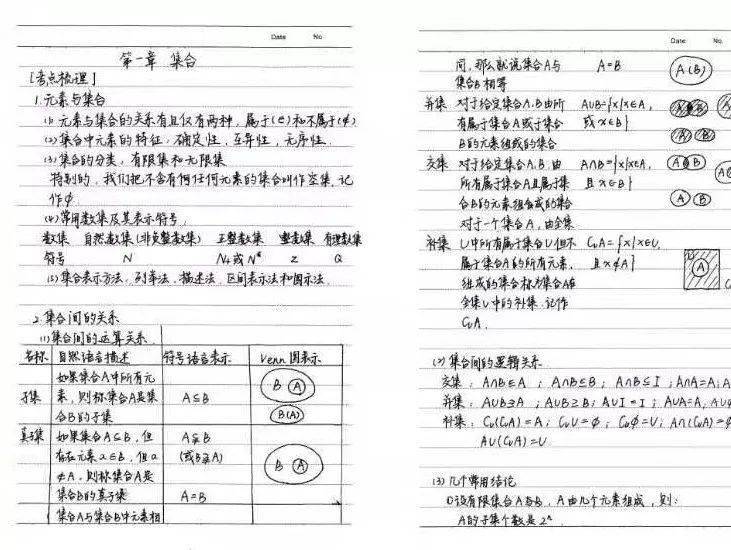 Date No
第一章 集合
[考点梳理]
1.元素与集合
(1) 元素与集合的关系有且仅有两种，属于(∈)和不属于(∉)
(2)集合中元素的特征，确定性，互异性，无序性.
(3)集合的分类，有限集和无限集
特别的，我们把不含有何任何元素的集合叫作空集，记
作φ.
(4)常用数集及其表示符号.
数集 自然数集(非负整数集) 正整数集 整数集 有理数集
符号 N N+或N* Z Q
(5)集合表示方法，列举法、描述法、区间表示法和图示法.
2.集合间的关系
(1)集合间的运算关系
名称 自然语言描述 符号语言表示 Venn图表示
如果集合A中所有元
子集 素，则称集合A是集 A⊆B B A
合B的子集 B(A)
真子集 如果集合A⊆B，但 A⫋B
存在元素x∈B，但a (或B⫌A) B A
∉A，则称集合A是
集合B的真子集 A=B
集合A与集合B中元素相
Date No
同，那么就说集合A与 A=B A(B)
集合B相等
并集 对于给定集合A.B由所 A∪B={x|x∈A, A B
有属于集合A或于集合 或x∈B}
B的元素组成的集合 A B
交集 对于给定集合A.B.由 A∩B={x|x∈A, A B
所有属于集合A且属于集 且x∈B}
合B的元素组合成的集合 A B
对于一个集合A，由全集
补集 U中所有属于集合U但不 CuA={x|x∈U,
属于集合A的所有元素， 且x∉A} U A
组成的集合称为集合A在
全集U中的补集.记作
CuA.
(2)集合间的逻辑关系
交集：A∩B⊆A；A∩B⊆B；A∩B⊆I；A∩A=A;A
并集：A∪B⊇A；A∪B⊇B；A∪I=I；A∪A=A, A∪φ
补集：Cu(CuA)=A；CuU=φ；Cuφ=U；A∩(CuA)=φ
A∪(CuA)=U
(3)几个常用结论
①设有限集合A与B，A由几个元素组成，则：
A的子集个数是2ⁿ.